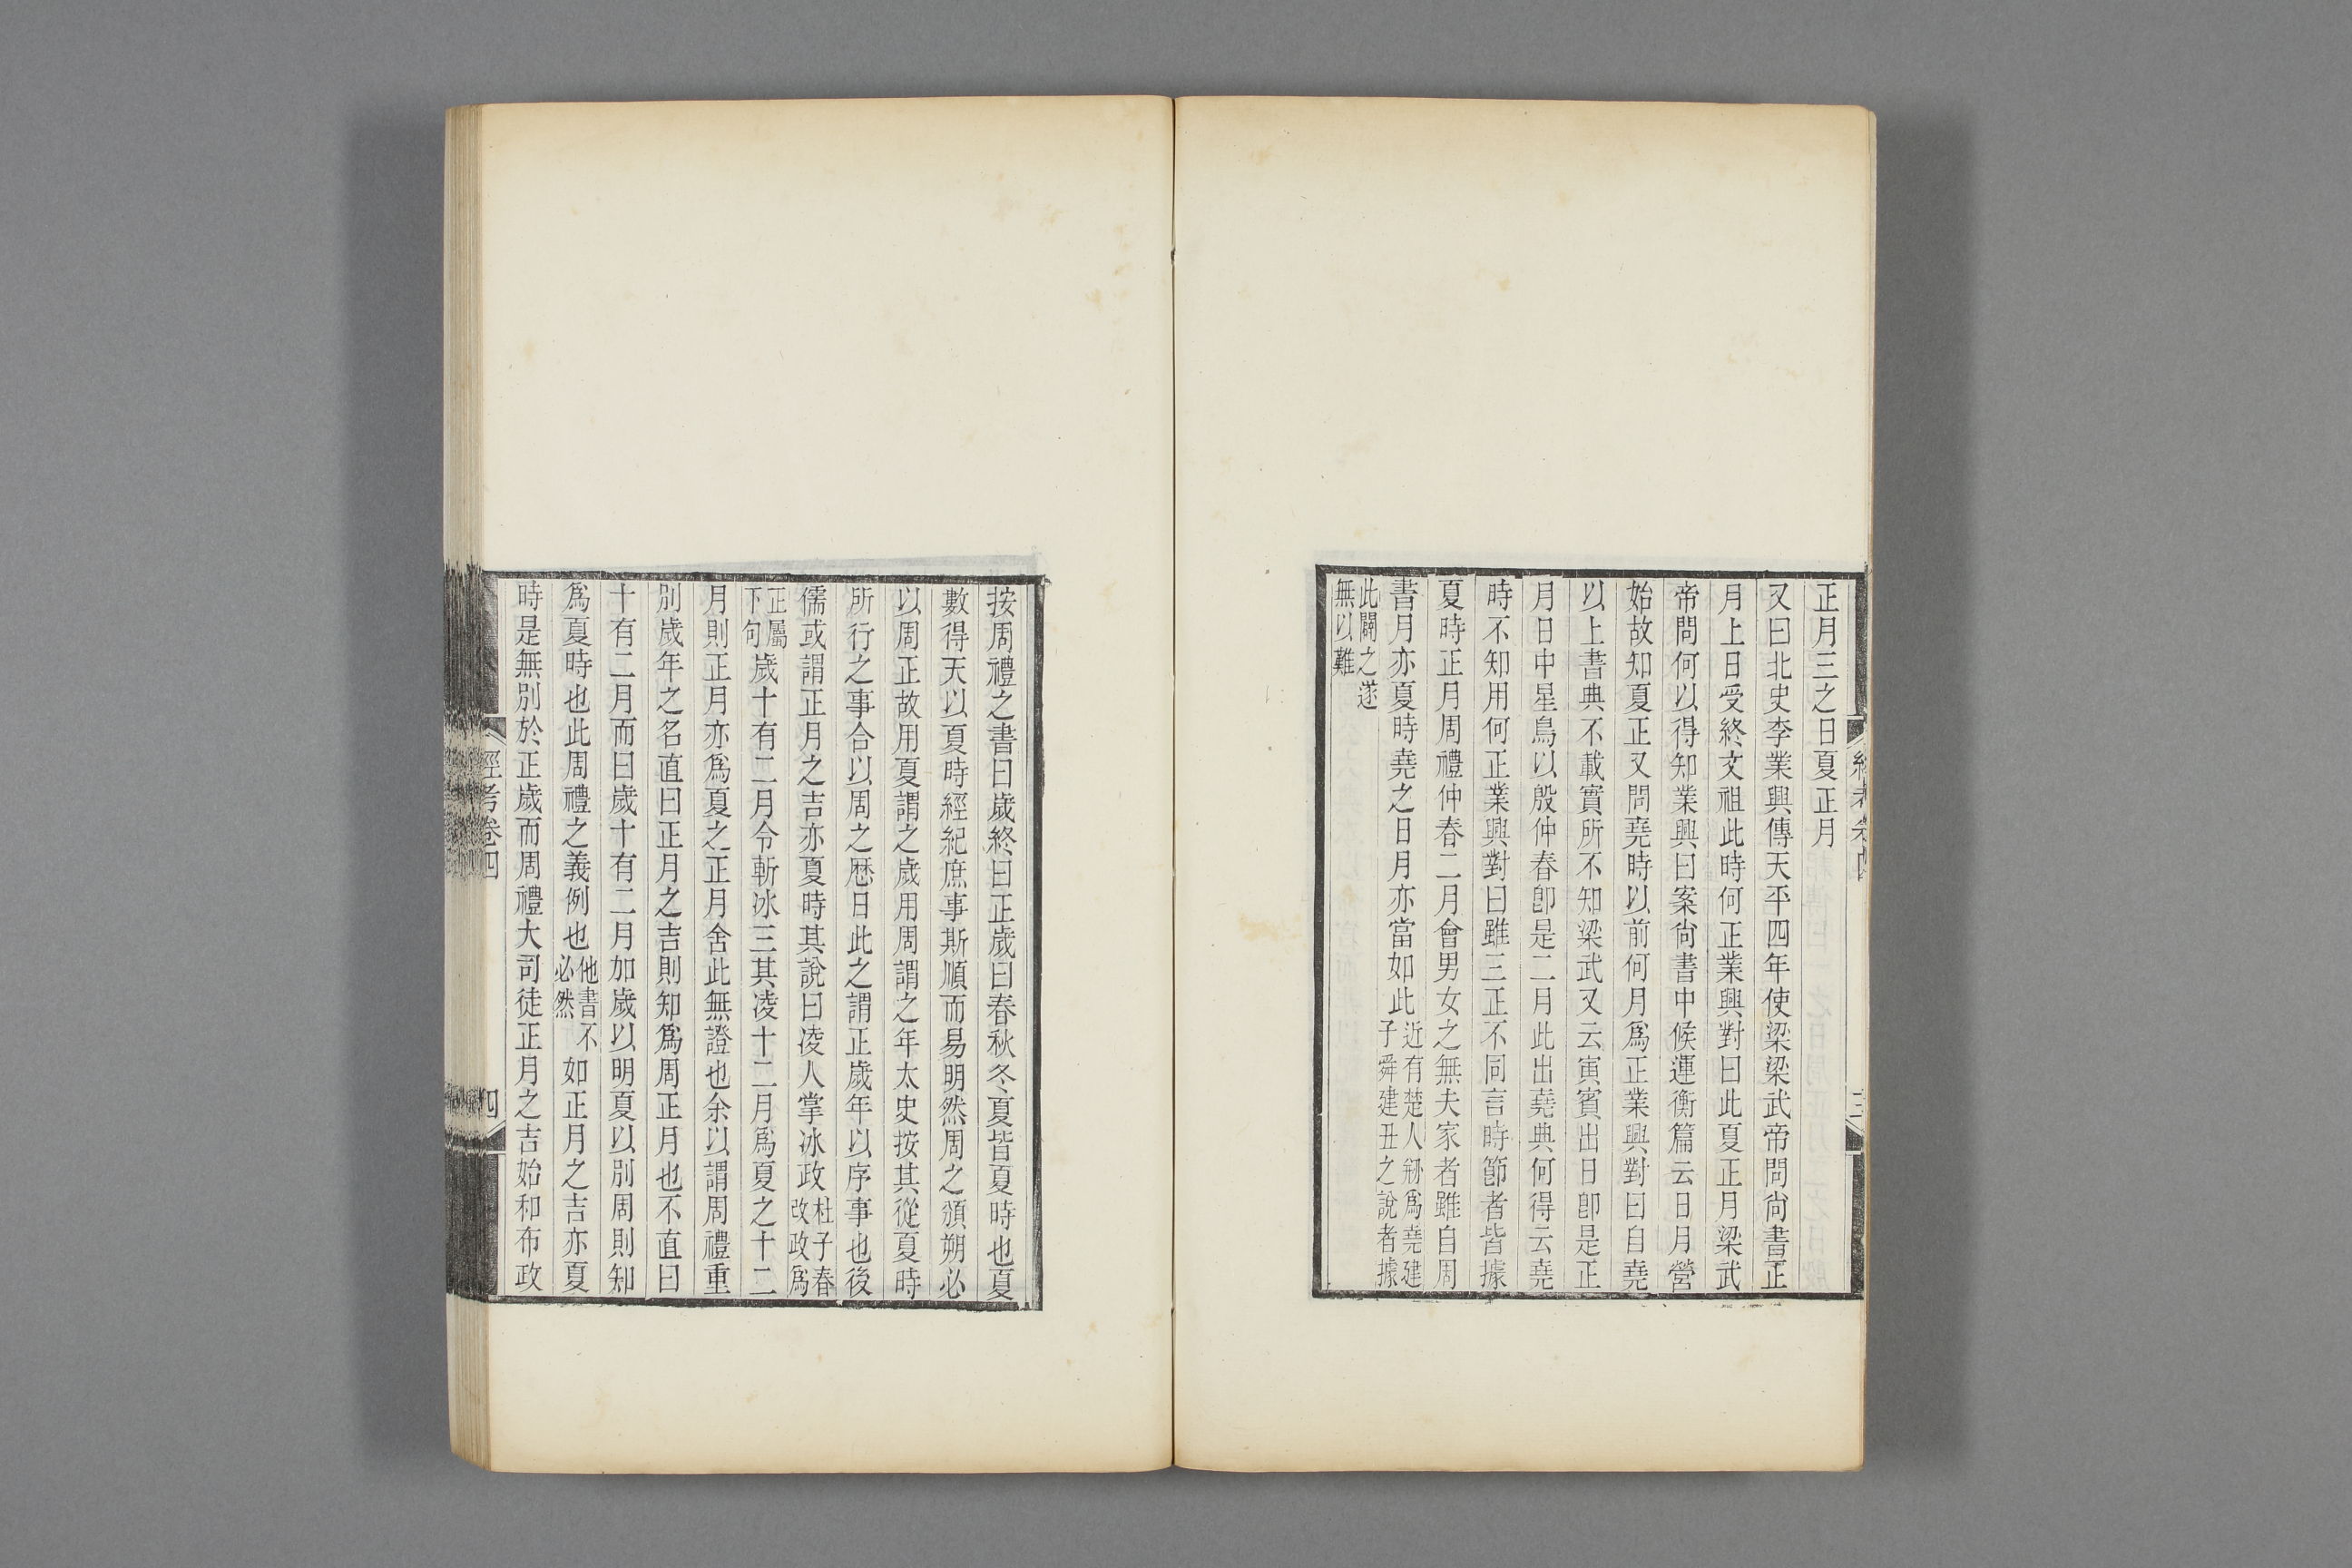 經考卷四
三
正月三之日夏正月
又曰北史李業興傳天平四年使梁梁武帝問尙書正
月上日受終文祖此時何正業興對曰此夏正月梁武
帝問何以得知業興曰案尙書中候運衡篇云日月營
始故知夏正又問堯時以前何月爲正業興對曰自堯
以上書典不載實所不知梁武又云寅賓出日卽是正
月日中星鳥以殷仲春卽是二月此出堯典何得云堯
時不知用何正業興對曰雖三正不同言時節者皆據
夏時正月周禮仲春二月會男女之無夫家者雖自周
書月亦夏時堯之日月亦當如此近有楚人剏爲堯建子舜建丑之說者據
此闢之遂無以難
按周禮之書曰歲終曰正歲曰春秋冬夏皆夏時也夏
數得天以夏時經紀庶事斯順而易明然周之頒朔必
以周正故用夏謂之歲用周謂之年太史按其從夏時
所行之事合以周之歷日此之謂正歲年以序事也後
儒或謂正月之吉亦夏時其說曰凌人掌冰政杜子春改政爲
正屬下句歲十有二月令斬冰三其凌十二月爲夏之十二
月則正月亦爲夏之正月舍此無證也余以謂周禮重
別歲年之名直曰正月之吉則知爲周正月也不直曰
十有二月而曰歲十有二月加歲以明夏以別周則知
爲夏時也此周禮之義例也他書不必然如正月之吉亦夏
時是無別於正歲而周禮大司徒正月之吉始和布政
經考卷四
四